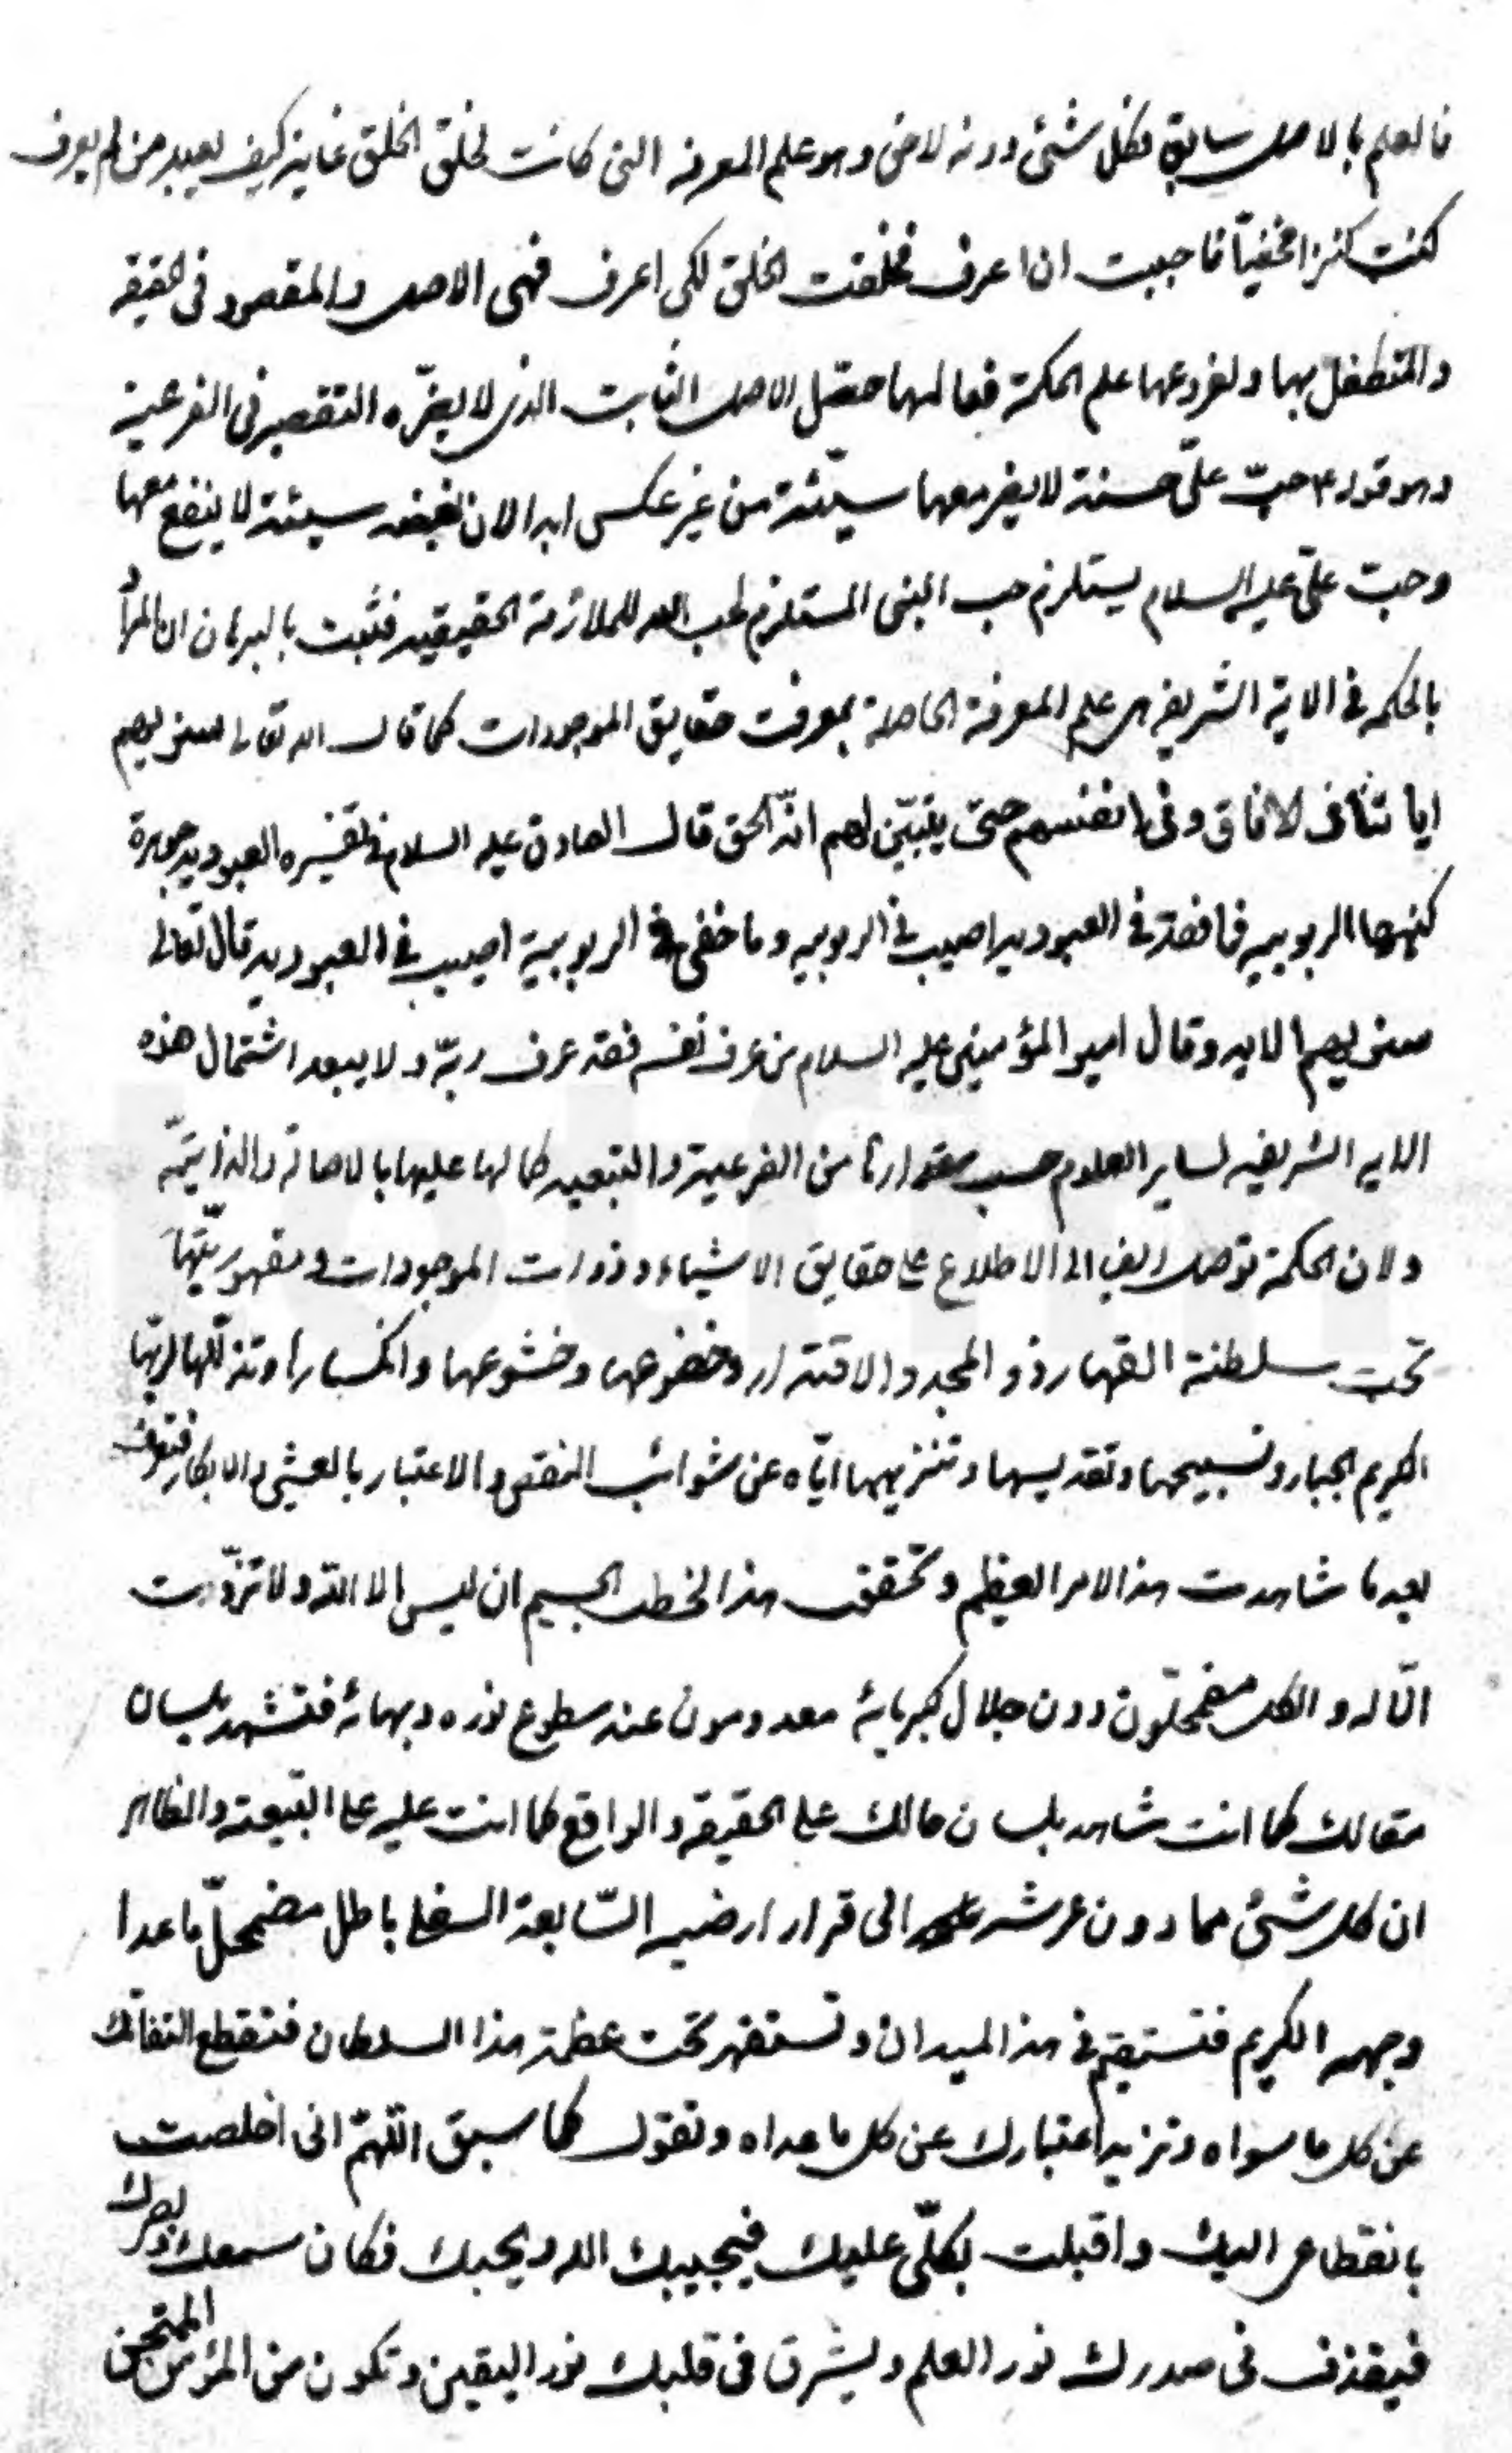 فالعلم بالاصل سابق فكل شئ دونه لاحق وهو علم المعرفة التى كانت لخلق الخلق غاية كيف يعبد من لم يعرف
كنت كنزا مخفيّا فاحببت ان اعرف فخلقت الخلق لكى اعرف فهى الاصل والمقصود فى الحقيقه
والمتطفل بها ولفروعها علم الحكمة فعالمها حصّل الاصل الثابت الذى لا يضرّه التقصير فى الفرعية
وهو قوله ع حبّ علىّ حسنة لا يضر معها سيّئة من غير عكس ابدا لان بغضه سيئة لا ينفع معها
وحبّ علىّ عليه السلام يستلزم حب النبى المستلزم لحب الله للملازمة الحقيقيه فثبت بالبرهان ان المراد
بالحكمه فى الاية الشريفه هى علم المعرفة الحاصلة بمعرفت حقايق الموجودات كما قال الله تعالى سنريهم
اياتنا فى الافاق وفى انفسهم حتى يتبيّن لهم انّه الحق قال الصادق عليه السلام فى تفسيره العبوديه جوهرة
كنهها الربوبيه فما فقد فى العبوديه اصيب فى الربوبيه وما خفى فى الربوبية اصيب فى العبوديه قال تعالى
سنريهم الايه وقال امير المؤمنين عليه السلام من عرف نفسه فقد عرف ربّه ولا يبعد اشتمال هذه
الايه الشريفه لساير العلوم حسب مقدارها من الفرعية والتبعيه كمالها عليها بالاصالة والذاتيّه
ولان الحكمة توصل ايضا الى الاطلاع على حقايق الاشياء وذوات الموجودات ومقهوريّتها
تحت سلطنة القهار ذو المجد والاقتدار وخضوعها وخشوعها وانكسارها وتذلّلها لربّها
الكريم الجبار وتسبيحها وتقديسها وتنزيهها ايّاه عن شوائب النقص والاعتبار بالعشى والابكار فتعرف
بعدما شاهدت هذا الامر العظيم وتحقق هذا الخطب الجسيم ان ليس الا الله ولا تذوّت
الّا له والكل مضمحلّون دون جلال كبريائه معدومون عند سطوع نوره وبهائه فتشهد بلسان
مقالك كما انت شاهد بلسان حالك على الحقيقه والواقع كما انت عليه على التبيعة والظاهر
ان كل شئ مما دون عرشه الى قرار ارضيه السّابعة السفلى باطل مضمحلّ ما عدا
وجهه الكريم فتستقيم فى هذا الميدان وتستقهر تحت عظمة هذا السلطان فتقطع التفاتك
عن كل ما سواه وتزيد اعتبارك عن كل ما عداه وتقول كما سبق اللّهمّ انى اخلصت
بانقطاعى اليك واقبلت بكلّى عليك فيجيبك الله ويحبك فكان سمعك وبصرك
فيقذف فى صدرك نور العلم ويشرق فى قلبك نور اليقين وتكون من المؤمن الممتحن